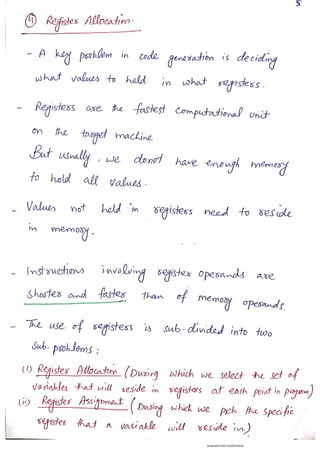 5
④ Register Allocation.
- A key problem in code generation is deciding
what values to hold in what registers.
- Registers are the fastest computational unit
on the target machine
But usually, we donot have enough memory
to hold all values.
- Values not held in registers need to reside
in memory.
- Instructions involving register operands are
shorter and faster than of memory operands.
- The use of registers is sub-divided into two
sub-problems:
(i) Register Allocation (During which we select the set of
variables that will reside in registers at each point in program)
(ii) Register Assignment (During which we pick the specific
register that a variable will reside in)
Scanned with CamScanner